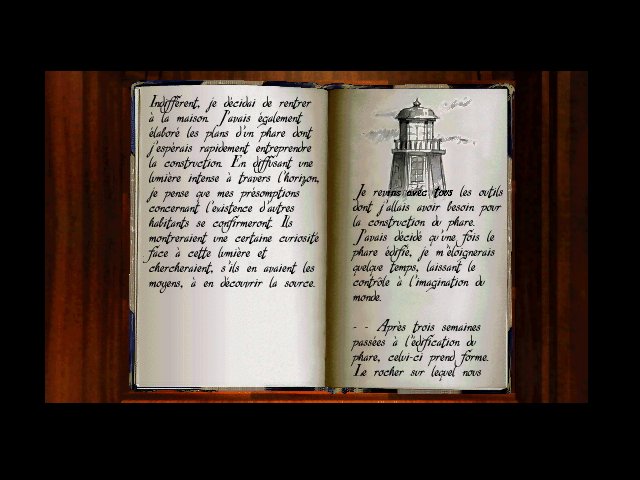 Indifférent, je décidai de rentrer
à la maison. J'avais également
élaboré les plans d'un phare dont
j'espérais rapidement entreprendre
la construction. En diffusant une
lumière intense à travers l'horizon,
je pense que mes présomptions
concernant l'existence d'autres
habitants se confirmeront. Ils
montreraient une certaine curiosité
face à cette lumière et
chercheraient, s'ils en avaient les
moyens, à en découvrir la source.
Je revins avec tous les outils
dont j'allais avoir besoin pour
la construction du phare.
J'avais décidé qu'une fois le
phare édifié, je m'éloignerais
quelque temps, laissant le
contrôle à l'imagination du
monde.
- - Après trois semaines
passées à l'édification du
phare, celui-ci prend forme.
Le rocher sur lequel nous